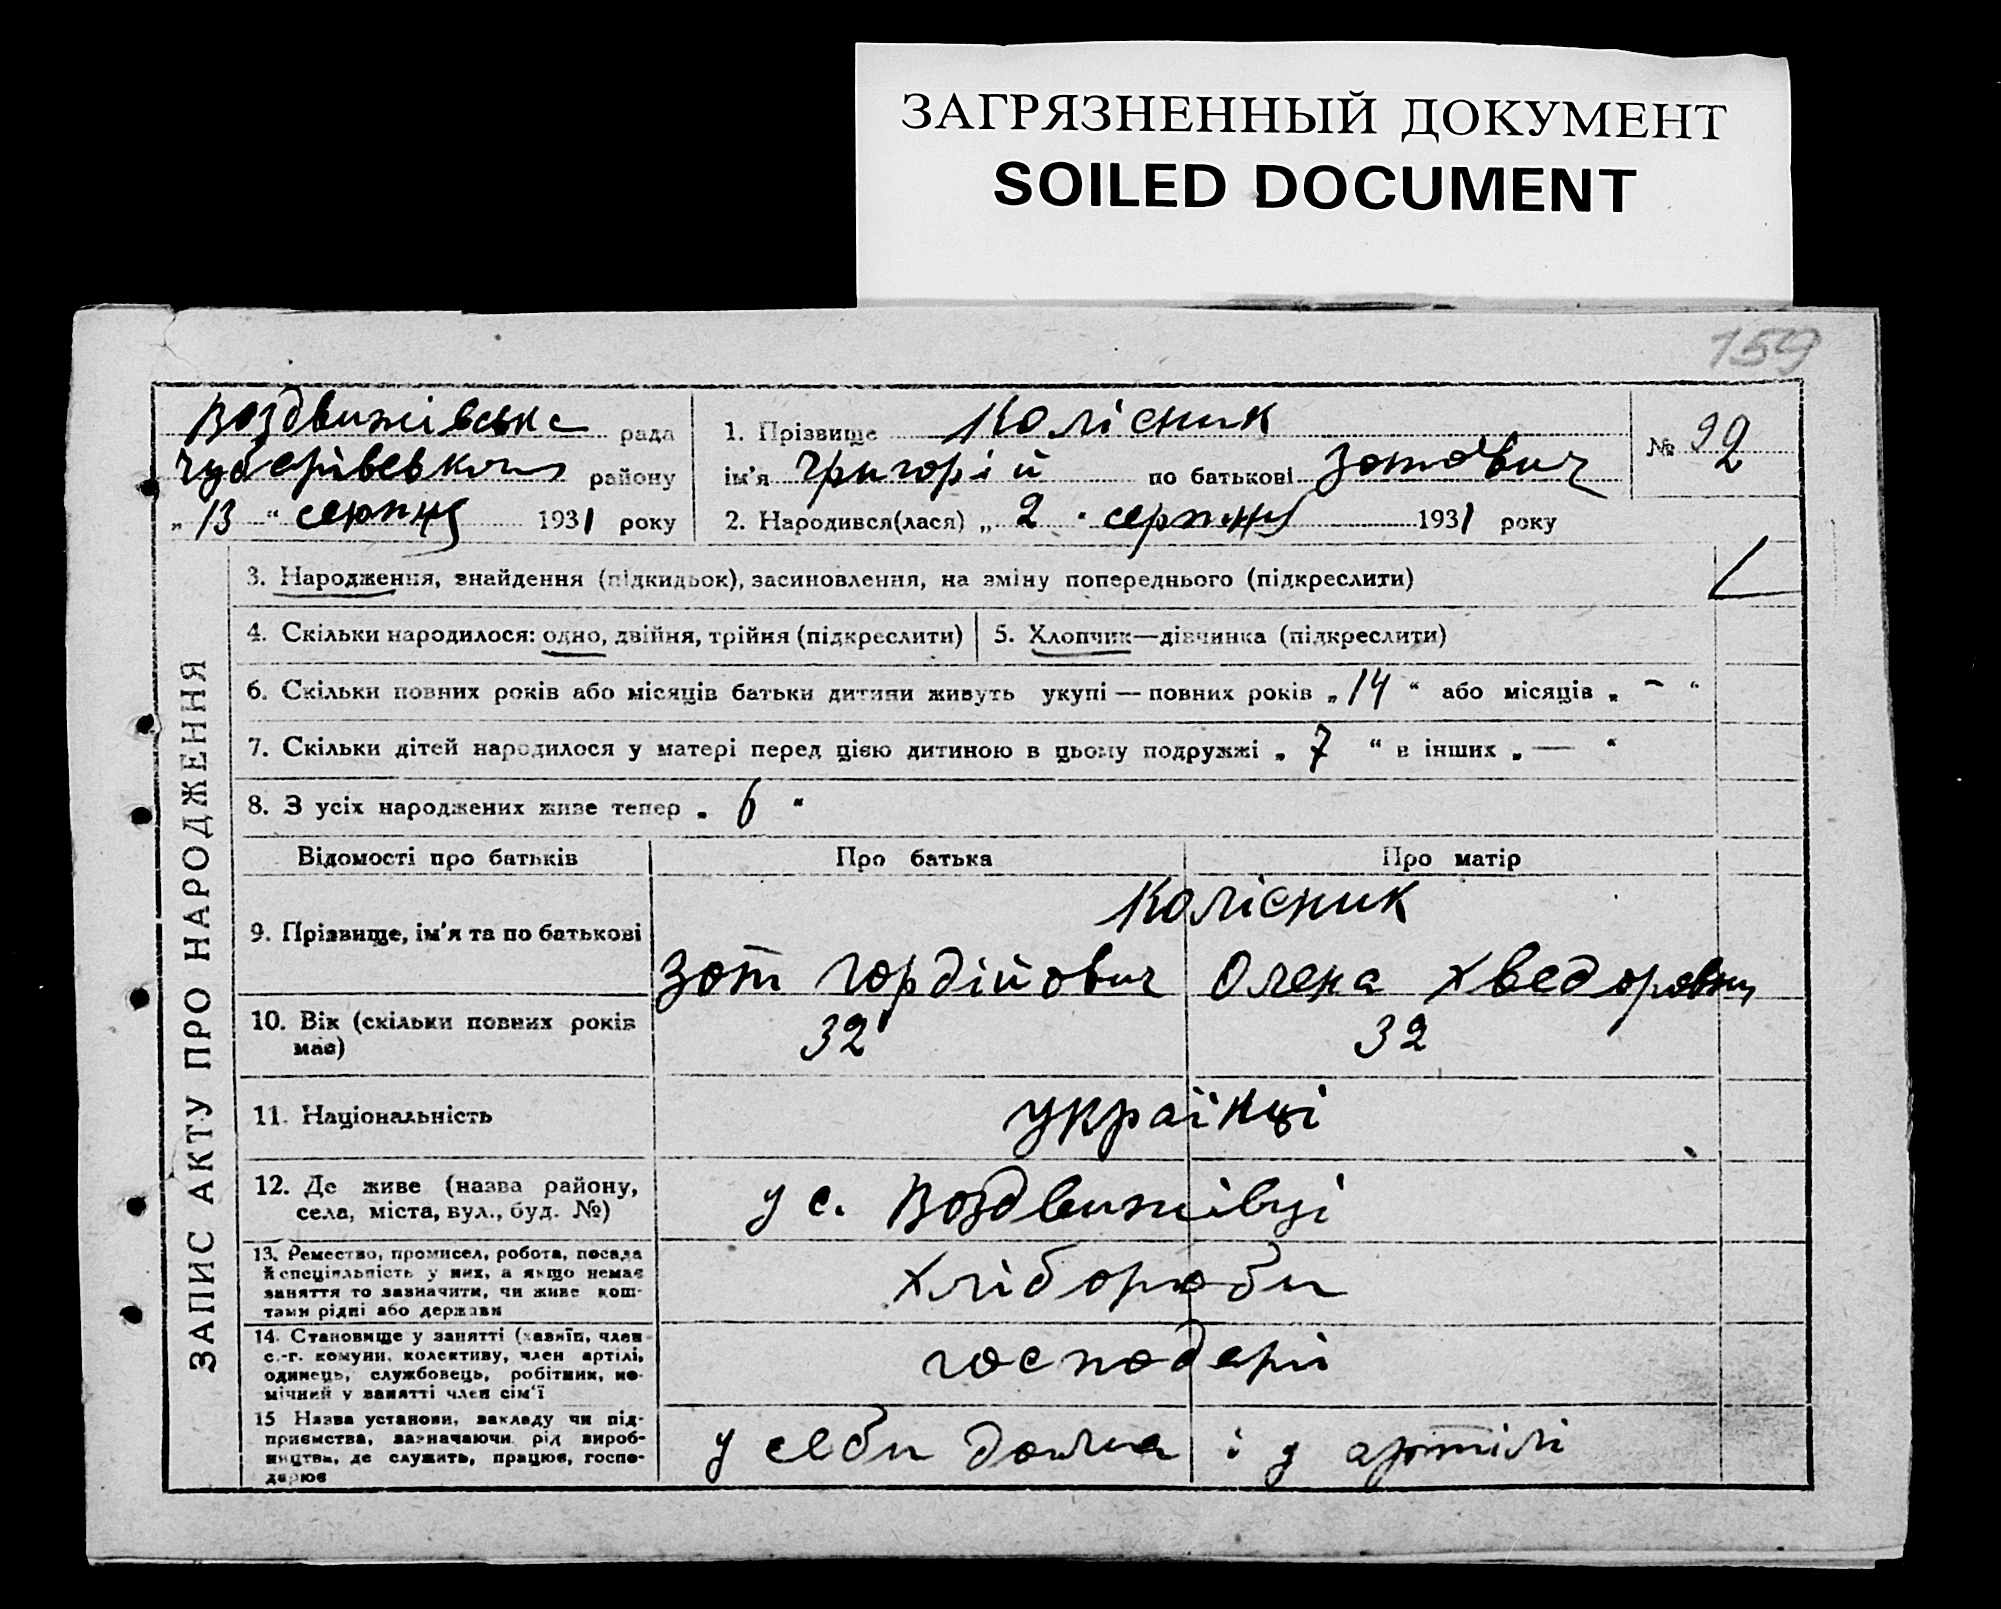 ЗАГРЯЗНЕННЫЙ ДОКУМЕНТ
SOILED DOCUMENT
159
Воздвижівська рада
Чубарівського району
„ 13 “ серпня 1931 року
1. Прізвище Колісник
ім'я Григорій по батькові Зотович
2. Народився(лася) „ 2 “ серпня 1931 року
№ 92
ЗАПИС АКТУ ПРО НАРОДЖЕННЯ
3. Народження, знайдення (підкидьок), засиновлення, на зміну попереднього (підкреслити)
4. Скільки народилося: одно, двійня, трійня (підкреслити)
5. Хлопчик—дівчинка (підкреслити)
6. Скільки повних років або місяців батьки дитини живуть укупі — повних років „ 14 “ або місяців „ — “
7. Скільки дітей народилося у матері перед цією дитиною в цьому подружжі „ 7 “ в інших „ — “
8. З усіх народжених живе тепер „ 6 “
Відомості про батьків Про батька Про матір
9. Прізвище, ім'я та по батькові
Колісник
Зот Гордійович Олена Хведоровна
10. Вік (скільки повних років
має)
32 32
11. Національність
українці
12. Де живе (назва району,
села, міста, вул., буд. №)
у с. Воздвижівці
13. Ремество, промисел, робота, посада
й спеціяльність у них, а якщо немає
заняття то зазначити, чи живе кош-
тами рідні або держави
хлібороби
14. Становище у занятті (хазяїн, член
с.-г. комуни, колективу, член артілі,
одинець, службовець, робітник, по-
мічний у занятті член сім'ї
господарі
15 Назва установи, закладу чи під-
приємства, зазначаючи рід вироб-
ництва, де служить, працює, госпо-
дарює
у себи дома і у артілі